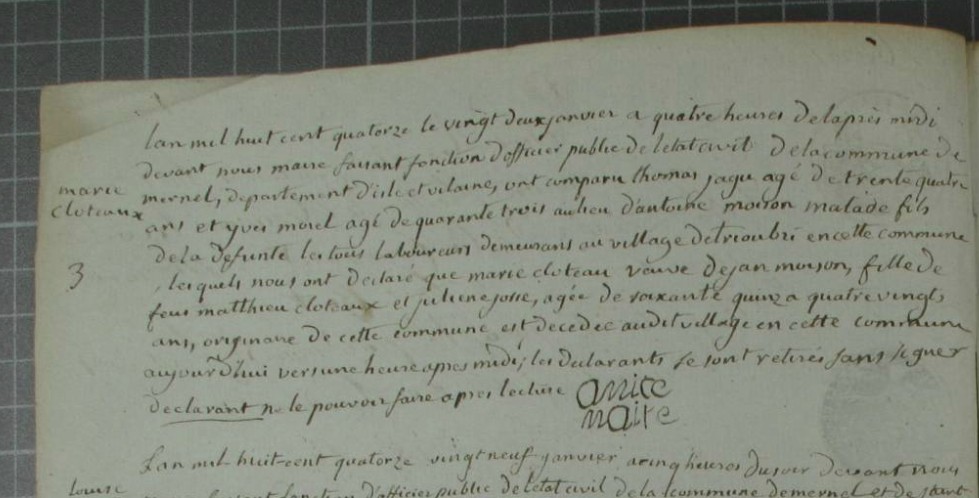 lan mil huit cent quatorze le vingt deux janvier a quatre heures delaprès midi
devant nous maire faisant fonction d'officier public de l'etat civil delacommune de
marie
cloteaux
mernel, departement d'isle et vilaine, ont comparu thomas jagu agé de trente quatre
ans et yves morel agé de quarante trois au lieu d'antoine moison malade fils
3
de la defunte les tous laboureurs demeurans au village de trioubri en cette commune
, lesquels nous ont declaré que marie cloteau veuve de jan moison, fille de
feus matthieu cloteaux et juliene josse, agée de soixante quinz a quatre vingts
ans, originaire de cette commune est decedée audit village en cette commune
aujourd'hui vers une heure apres midi; les declarants se sont retirés sans signer
declarant ne le pouvoir faire apres lecture
maire
Lan mil-huit-cent quatorze vingt neuf janvier a cinq heures du soir devant nous
louise
faisant fonction d'officier public de l'etat civil de la commune de mernel et de